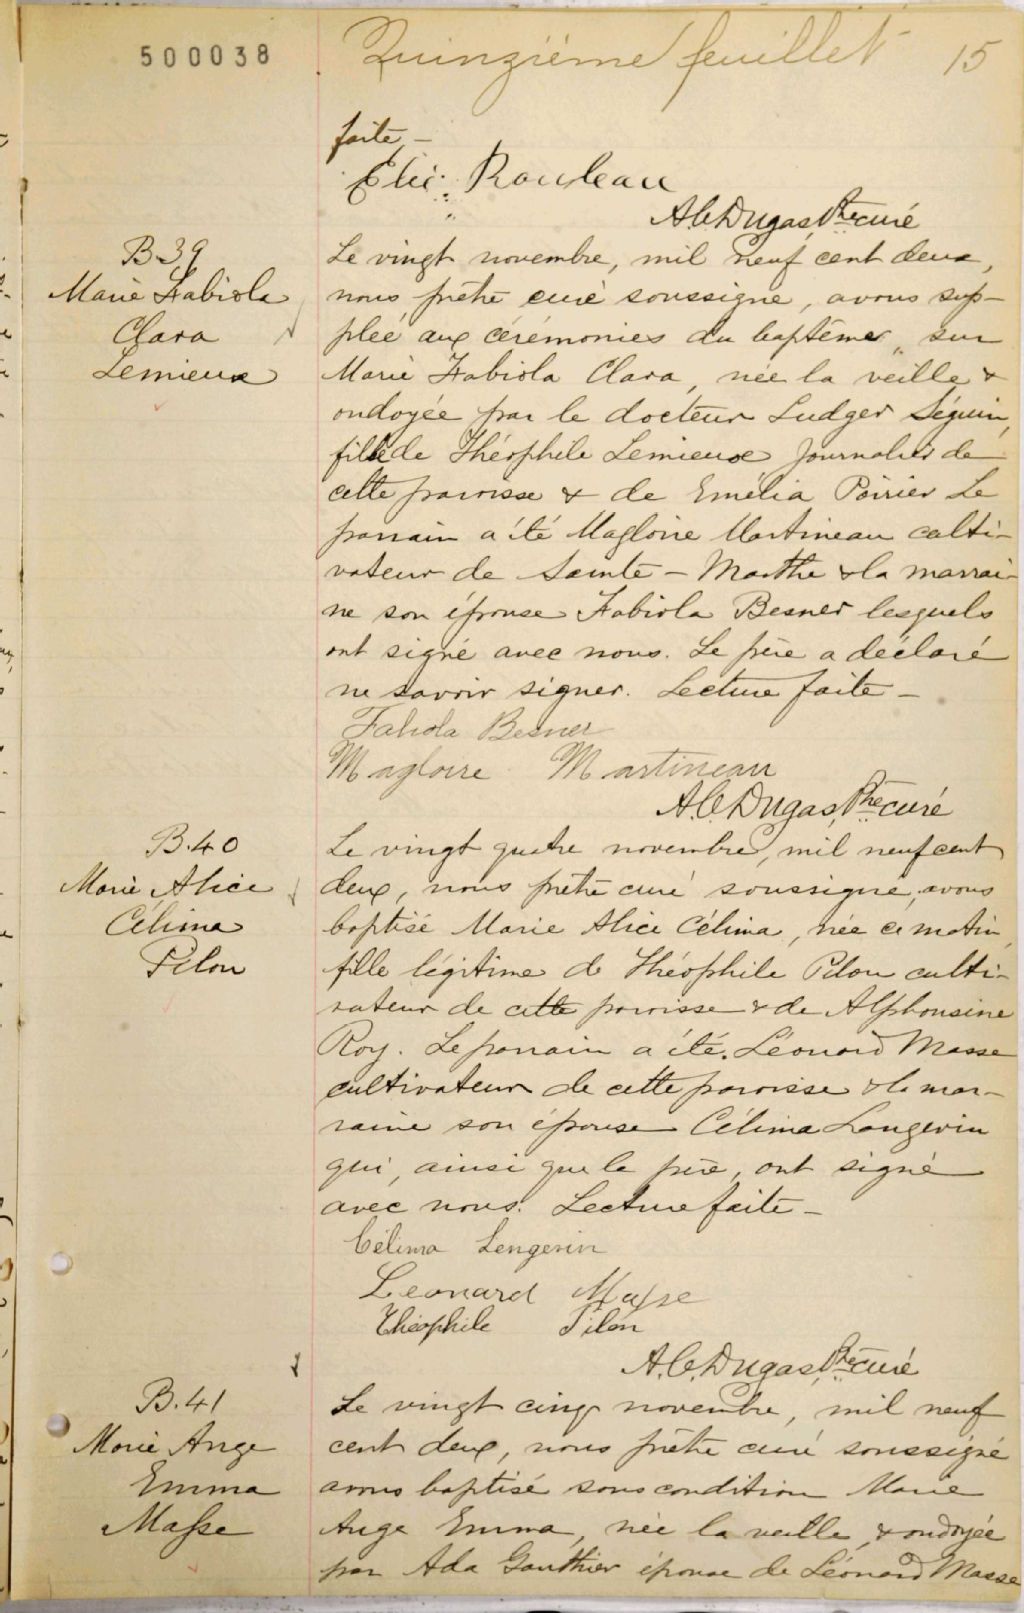 500038
Quinzième feuillet 15
faite —
Elie Rouleau
A.C. Dugas, Ptre curé
B.39
Marie Fabiola
Clara
Lemieux
Le vingt novembre, mil neuf cent deux,
nous prêtre curé soussigné, avons sup-
pléé aux cérémonies du baptême, sur
Marie Fabiola Clara, née la veille &
ondoyée par le docteur Ludger Séguin,
fille de Théophile Lemieux journalier de
cette paroisse & de Emélia Poirier Le
parrain a été Magloire Martineau culti-
vateur de Sainte-Marthe & la marrai-
ne son épouse Fabiola Besner lesquels
ont signé avec nous. Le père a déclaré
ne savoir signer. Lecture faite —
Fabiola Besner
Magloire Martineau
A.C. Dugas, Ptre curé
B.40
Marie Alice
Célima
Pilon
Le vingt quatre novembre, mil neuf cent
deux, nous prêtre curé soussigné, avons
baptisé Marie Alice Célima, née ce matin,
fille légitime de Théophile Pilon culti-
vateur de cette paroisse & de Alphonsine
Roy. Le parrain a été Léonard Masse
cultivateur de cette paroisse & la mar-
raine son épouse Célima Langevin
qui, ainsi que le père, ont signé
avec nous. Lecture faite —
Célima Lengevin
Leonard Masse
Théophile Pilon
A.C. Dugas, Ptre curé
B.41
Marie Ange
Emma
Masse
Le vingt cinq novembre, mil neuf
cent deux, nous prêtre curé soussigné
avons baptisé sous condition Marie
Ange Emma, née la veille, & ondoyée
par Ada Gauthier épouse de Léonard Masse